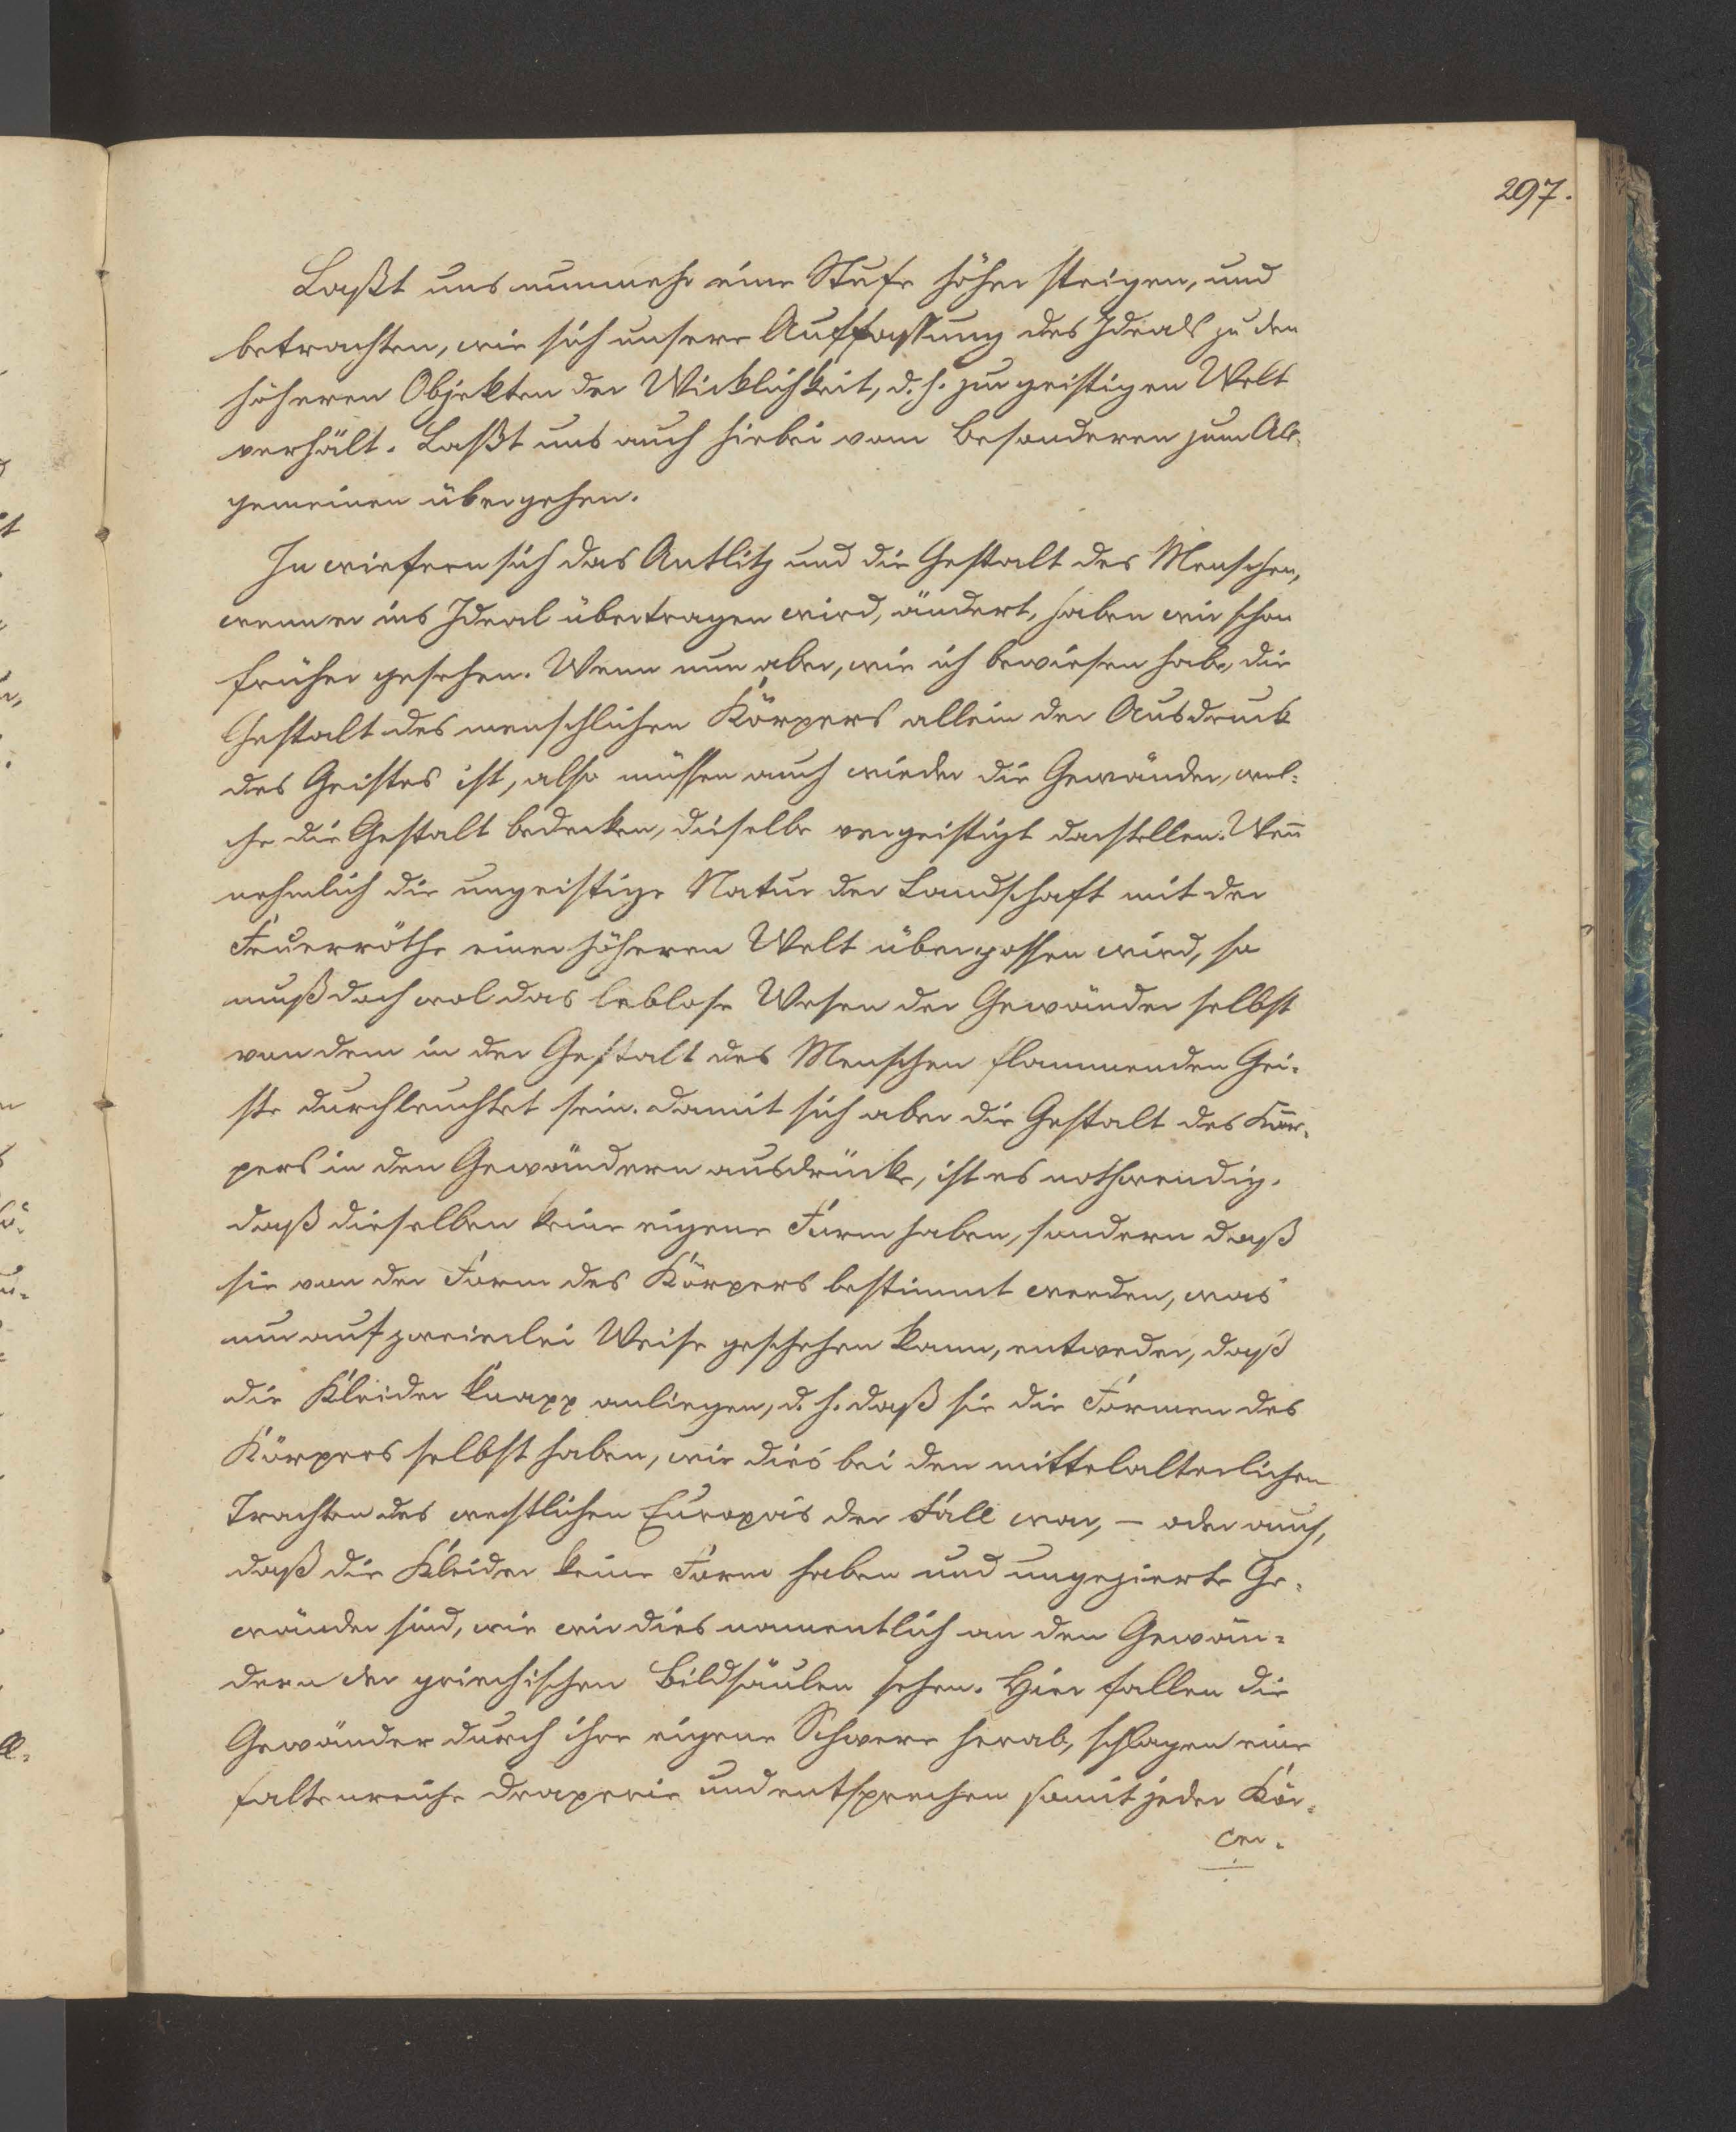 297.
Laßt uns nunmehr eine Stufe höher steigen, und
betrachten, wie sich unsere Auffassung des Ideals zu den
höheren Objekten der Wirklichkeit, d. h. zur geistigen Welt
verhält. Laßt uns auch hiebei vom Besonderen zum All-
gemeinen übergehen.
In wiefern sich das Antlitz und die Gestalt des Menschen,
wenn er ins Ideal übertragen wird, ändert, haben wir schon
früher gesehen. Wenn nun aber, wie ich bewiesen habe, die
Gestalt des menschlichen Körpers allein der Ausdruck
des Geistes ist, also müssen auch wieder die Gewänder, wel-
che die Gestalt bedecken, dieselbe vergeistigt darstellen. Wenn
nehmlich die ungeistige Natur der Landschaft mit der
Feuerröthe einer höheren Welt übergossen wird, so
muß doch wol das leblose Wesen der Gewänder selbst
von dem in der Gestalt des Menschen flammenden Gei-
ste durchleuchtet sein. Damit sich aber die Gestalt des Kör-
pers in den Gewändern ausdrücke, ist es nothwendig,
daß dieselben keine eigene Form haben, sondern daß
sie von der Form des Körpers bestimmt werden, was
nur auf zweierlei Weise geschehen kann, entweder, daß
die Kleider knapp anliegen, d. h. daß sie die Formen des
Körpers selbst haben, wie dies bei den mittelalterlichen
Trachten des westlichen Europas der Fall war, – oder auch,
daß die Kleider keine Form haben und ungezierte Ge-
wänder sind, wie wir dies namentlich an den Gewän-
dern der griechischen Bildsäulen sehen. Hier fallen die
Gewänder durch ihre eigene Schwere herab, schlagen eine
faltenreiche Draperie und entsprechen somit jeder Kör-